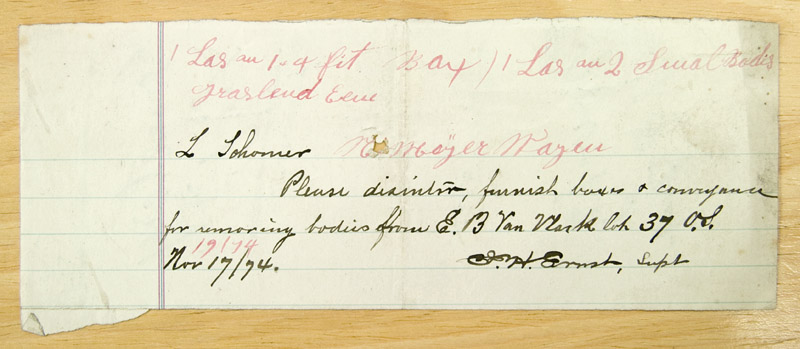 1 Las au 1-4 fit Box / 1 Las au 2 Smal Bodis
Graslend Eem
L Schomer W. Meyer Wagen
Please disinter, furnish boxes & conveyance
for removing bodies from E. B Van Vlack lot 37 O.S.
19/74
Nov 17/74. J. H. Ernst, Supt